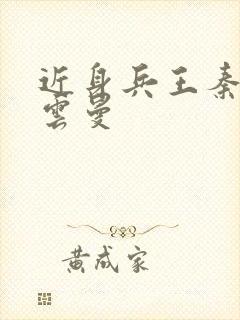 近身兵王秦
雲曼
黃成家